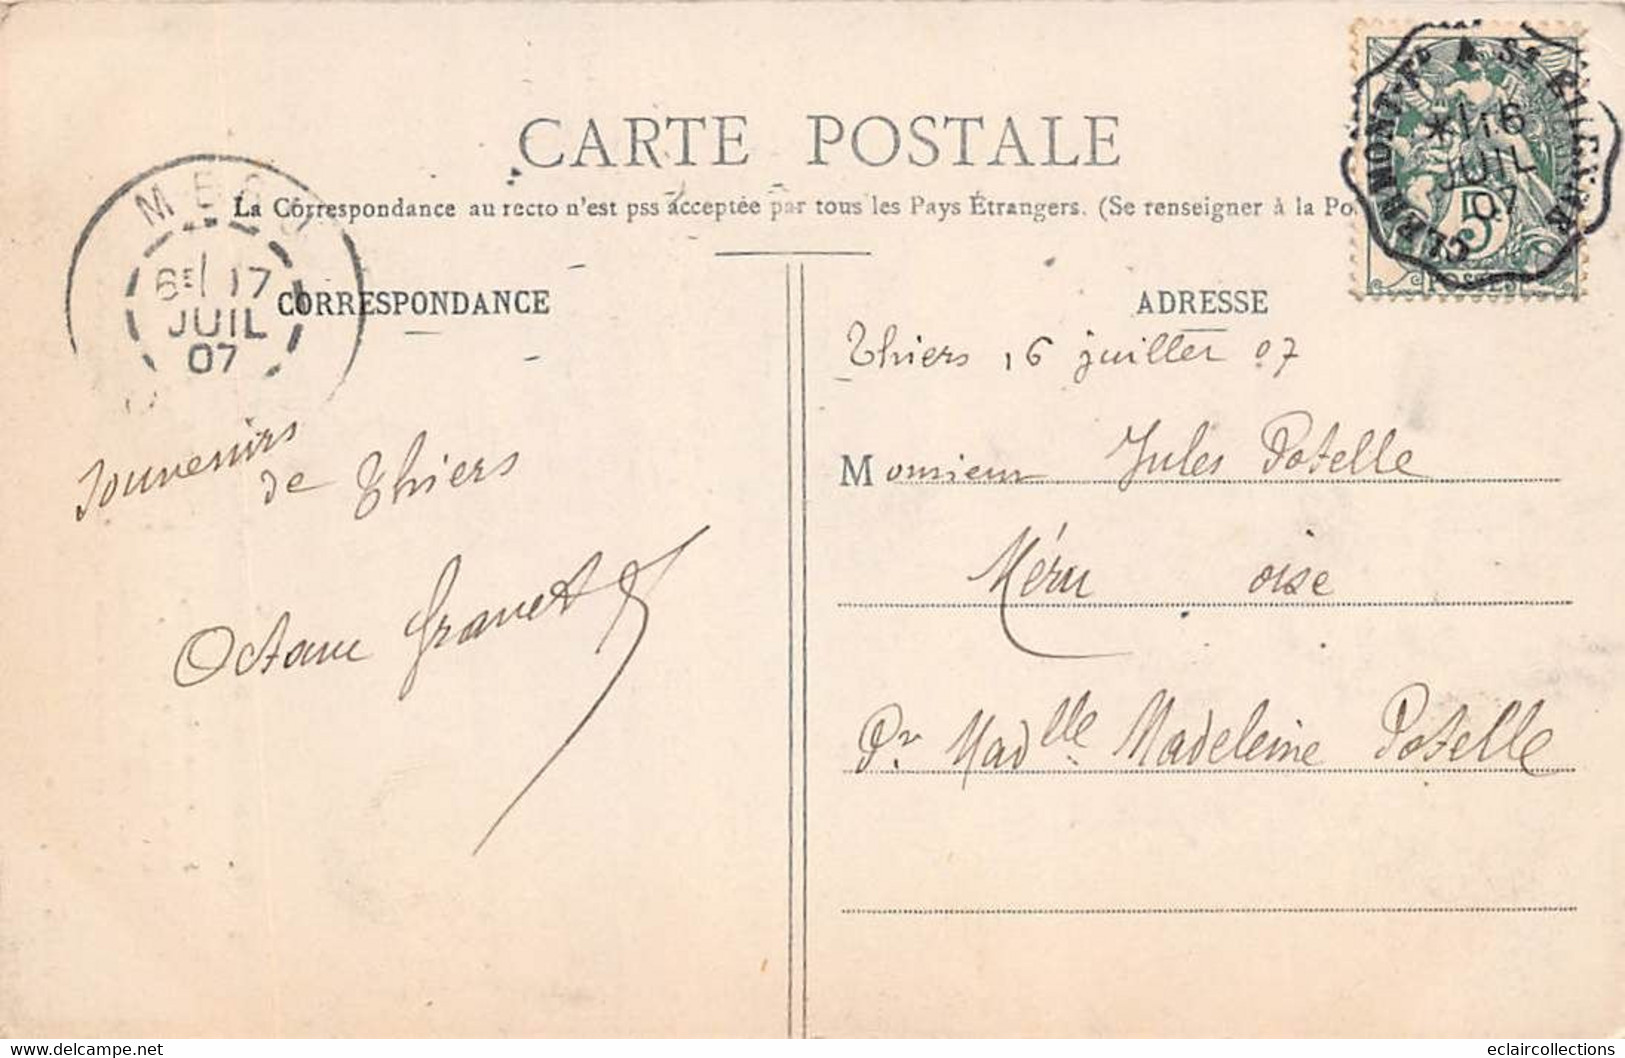 CARTE POSTALE
La Correspondance au recto n'est pss acceptée par tous les Pays Étrangers. (Se renseigner à la Po
CORRESPONDANCE
ADRESSE
CLERMONT-Fd A St ETIENNE
16
JUIL
07
5
POSTES
MERU
6E 17
JUIL
07
Souvenirs
de Thiers
Octave Granet
Thiers 16 juillet 07
Monsieur Jules Potelle
Méru oise
Pr Madlle Madeleine Potelle
eclaircollections